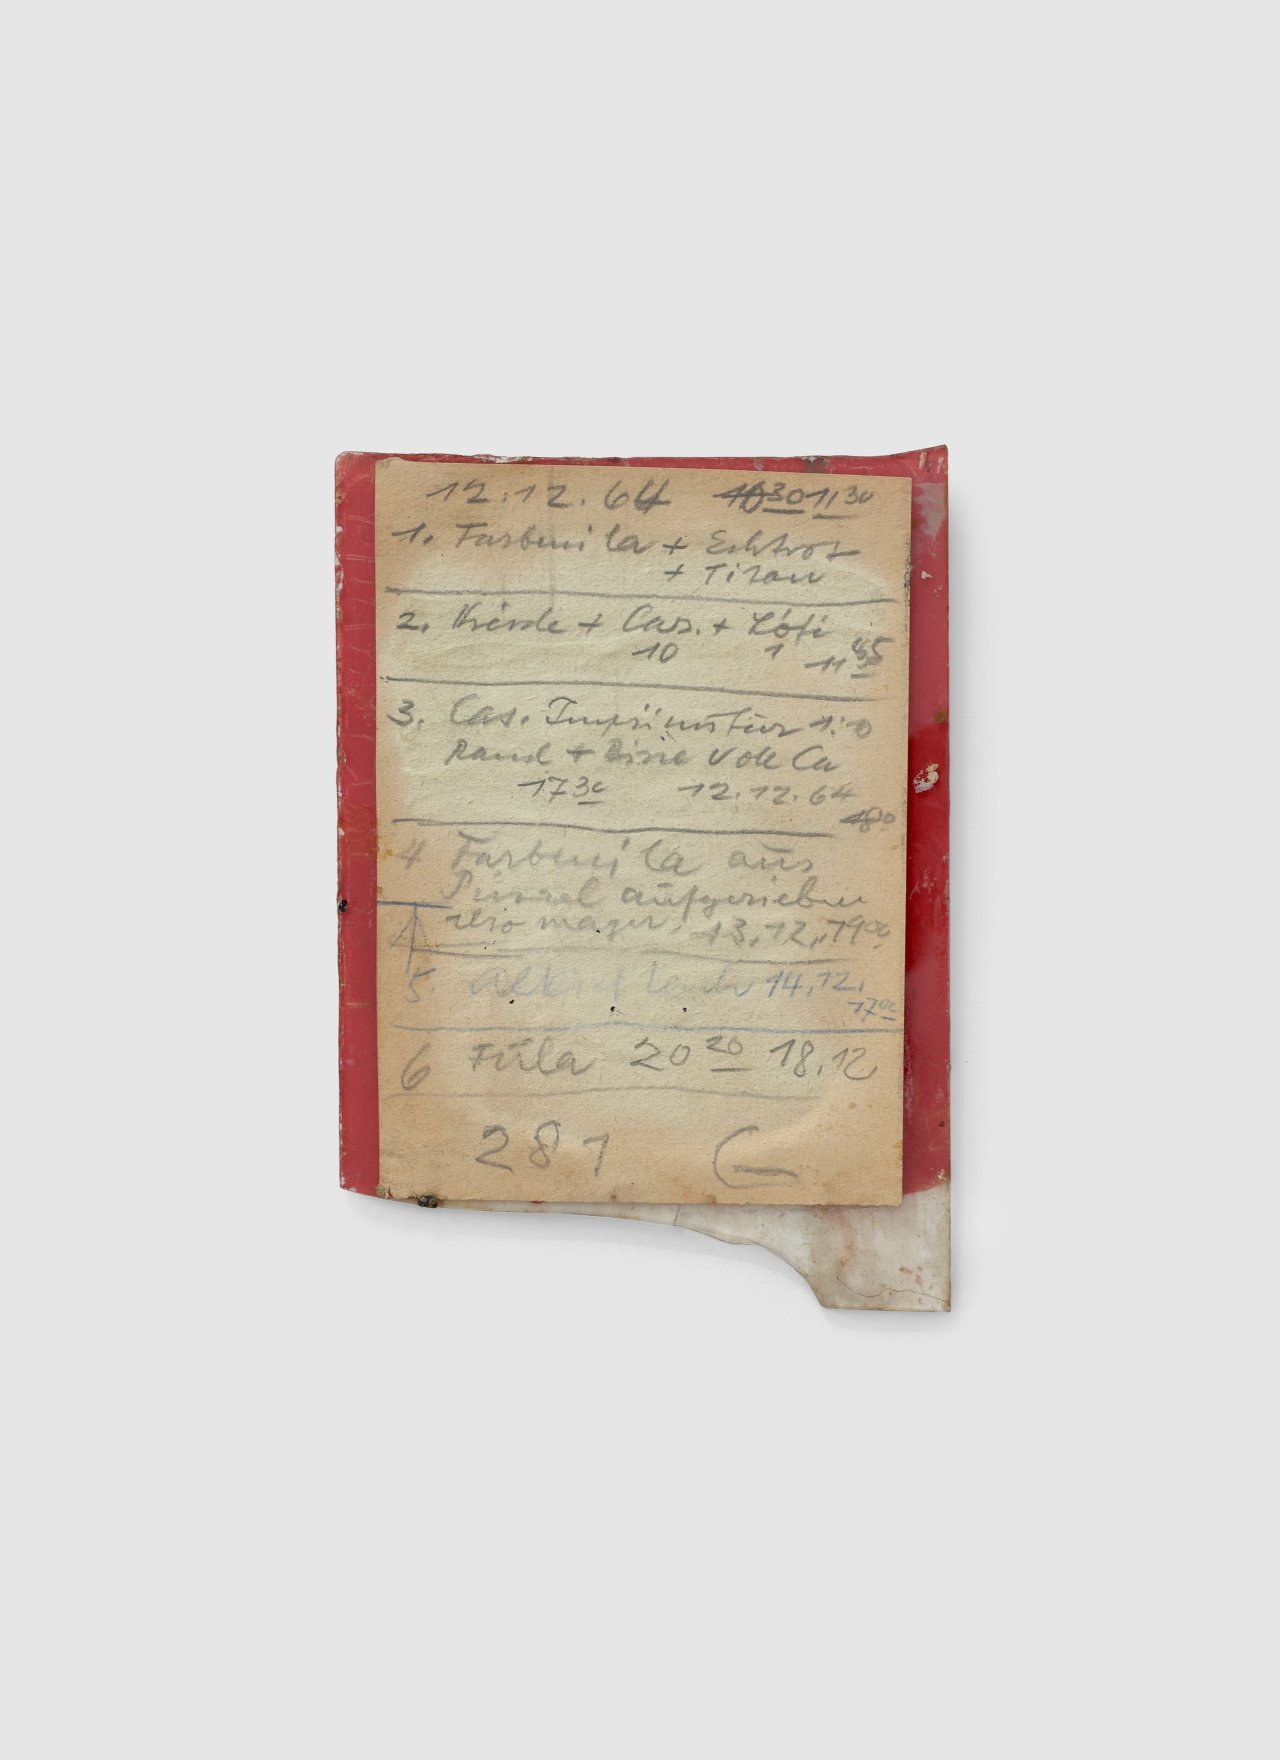 12.12.64 1030 1130
1. Farbenila + Echtrot
+ Titan
2. Kreide + Cas. + Löfi
10 1 11 45
3. Cas. Imprimitur 1:10
Rand + Birne Voll Ca
17 30 12.12.64
4 Farbenila aus
Pinsel aufgerieben
also mager. 13.12. 19 00
5. 14.12.
17 00
6 Fula 20 20 18.12
281